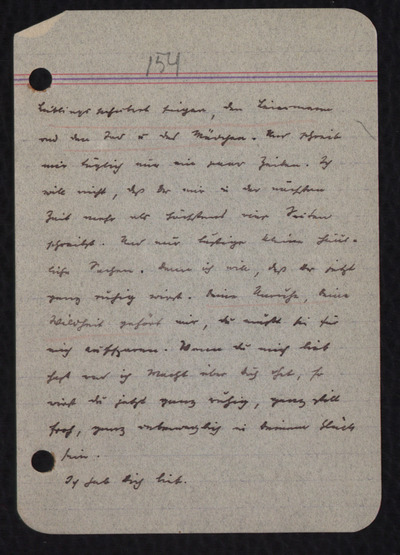 154
Lieblings singen, den Leiermann
und den Tod u das Mädchen. Nur schreib
mir täglich nur ein paar Zeilen. Ich
will nicht, daß Du mir in der nächsten
Zeit mehr als höchstens vier Seiten
schreibst. Und nur lustige kleine häus-
liche Sachen. Denn ich will, daß Du jetzt
ganz ruhig wirst. Deine Unruhe, Deine
Wildheit gehört mir, du mußt sie für
mich aufsparen. Wenn du mich lieb
hast und ich Macht über Dich habe, so
wirst du jetzt ganz ruhig, ganz still
froh, ganz unbeweglich in Deinem Glück
sein.
Ich hab Dich lieb.